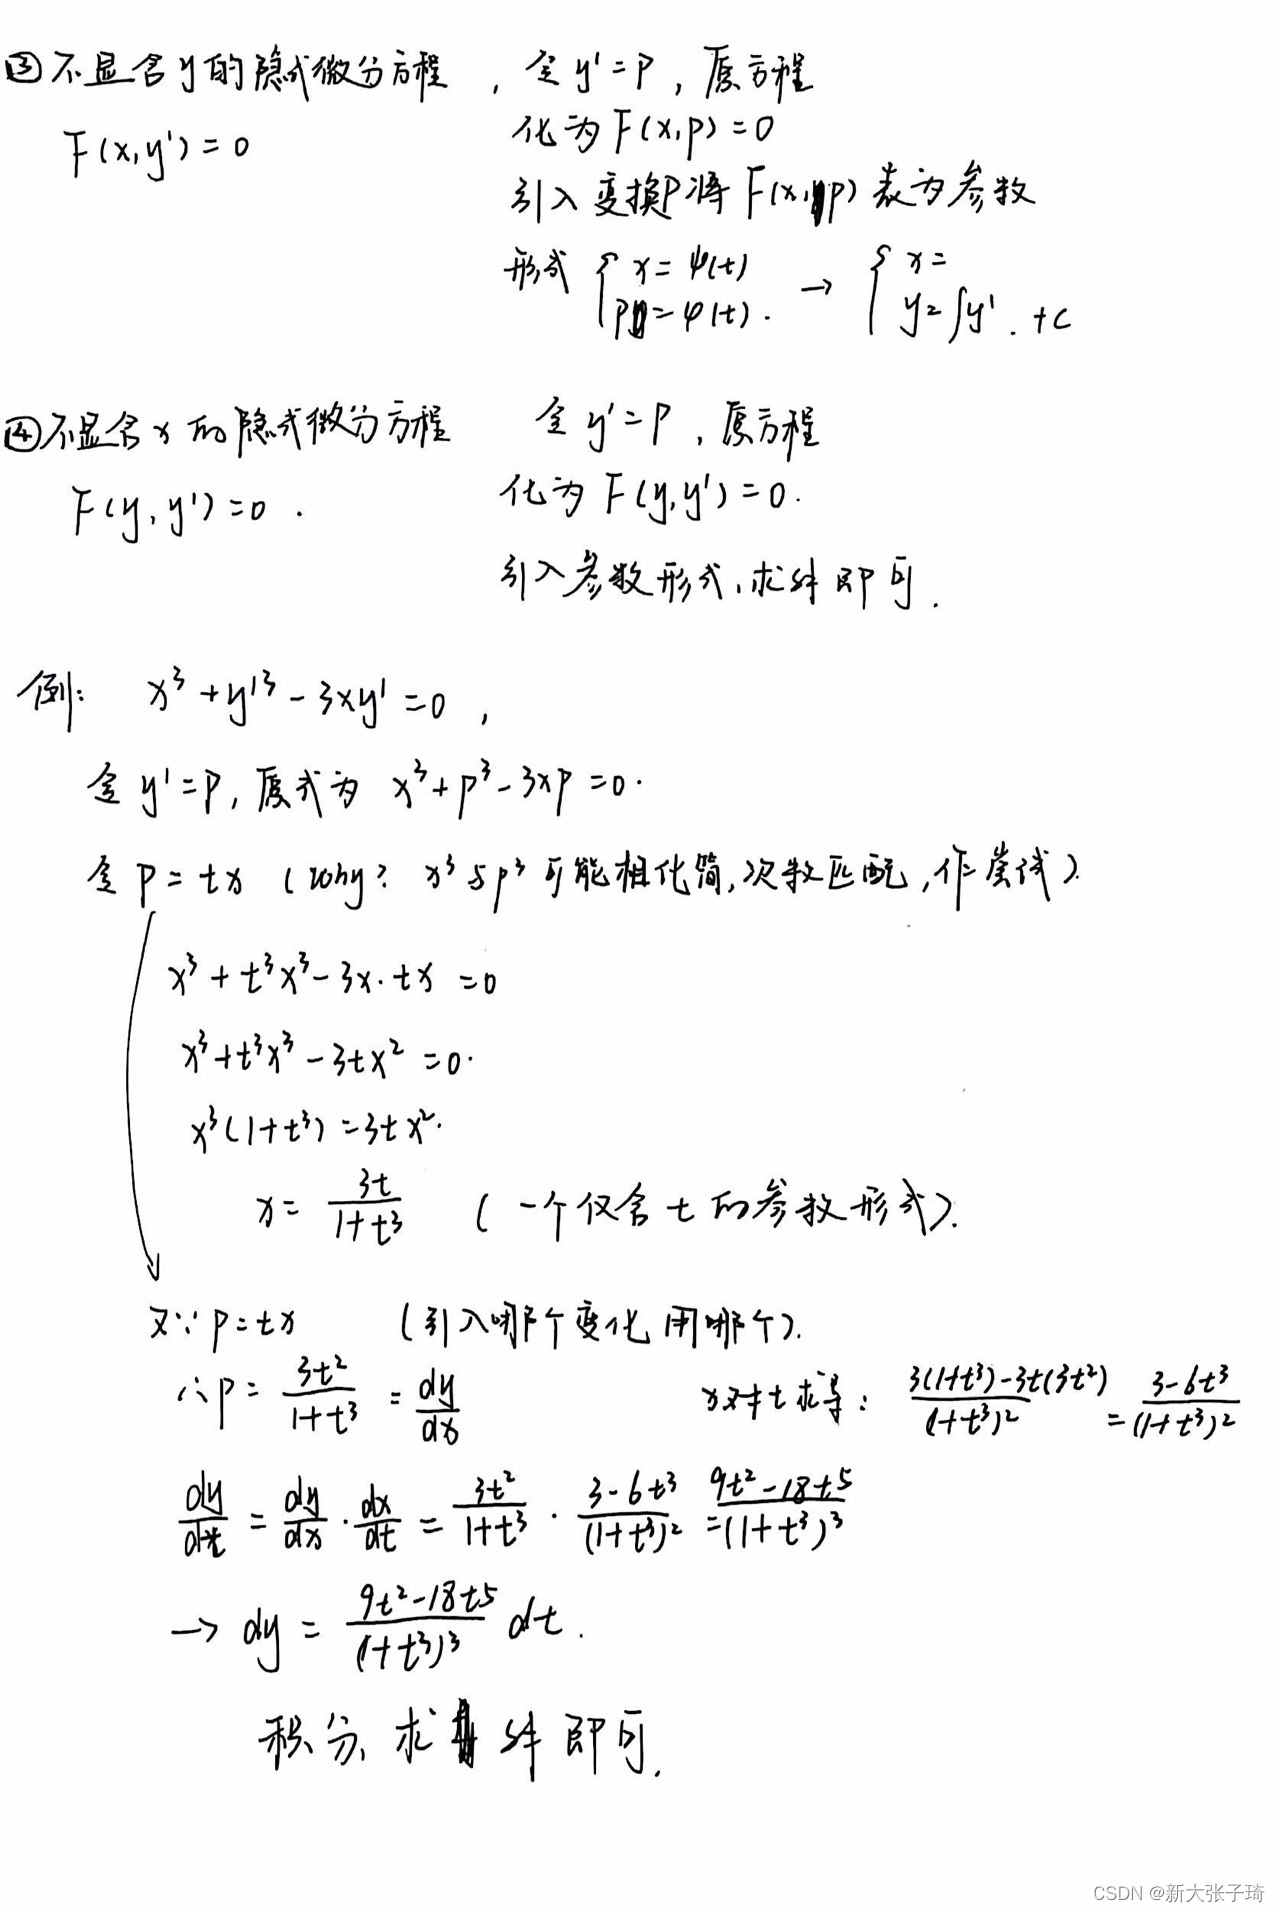 ③不显含y的隐式微分方程，令y'=p，原方程
F(x,y')=0
化为F(x,p)=0
引入变换p将F(x,p)表为参数
形式 { x=ψ(t) → { x=
p=φ(t). y=∫y'.+c
④不显含x的隐式微分方程 令y'=p，原方程
F(y,y')=0.
化为F(y,y')=0.
引入参数形式,求解即可.
例: x³+y'³-3xy'=0,
令y'=p,原式为 x³+p³-3xp=0.
令p=tx (why? x³与p³可能相化简,次数匹配,作尝试).
x³+t³x³-3x·tx=0
x³+t³x³-3tx²=0.
x³(1+t³)=3tx².
x=3t/(1+t³) (一个仅含t的参数形式).
又∵p=tx (引入哪个变化用哪个).
∴p=3t²/(1+t³)=dy/dx x对t求导: (3(1+t³)-3t(3t²))/(1+t³)²=(3-6t³)/(1+t³)²
dy/dt=dy/dx·dx/dt=3t²/(1+t³)·(3-6t³)/(1+t³)²=(9t²-18t⁵)/(1+t³)³
→dy=(9t²-18t⁵)/(1+t³)³ dt.
积分,求解即可.
CSDN @新大张子琦